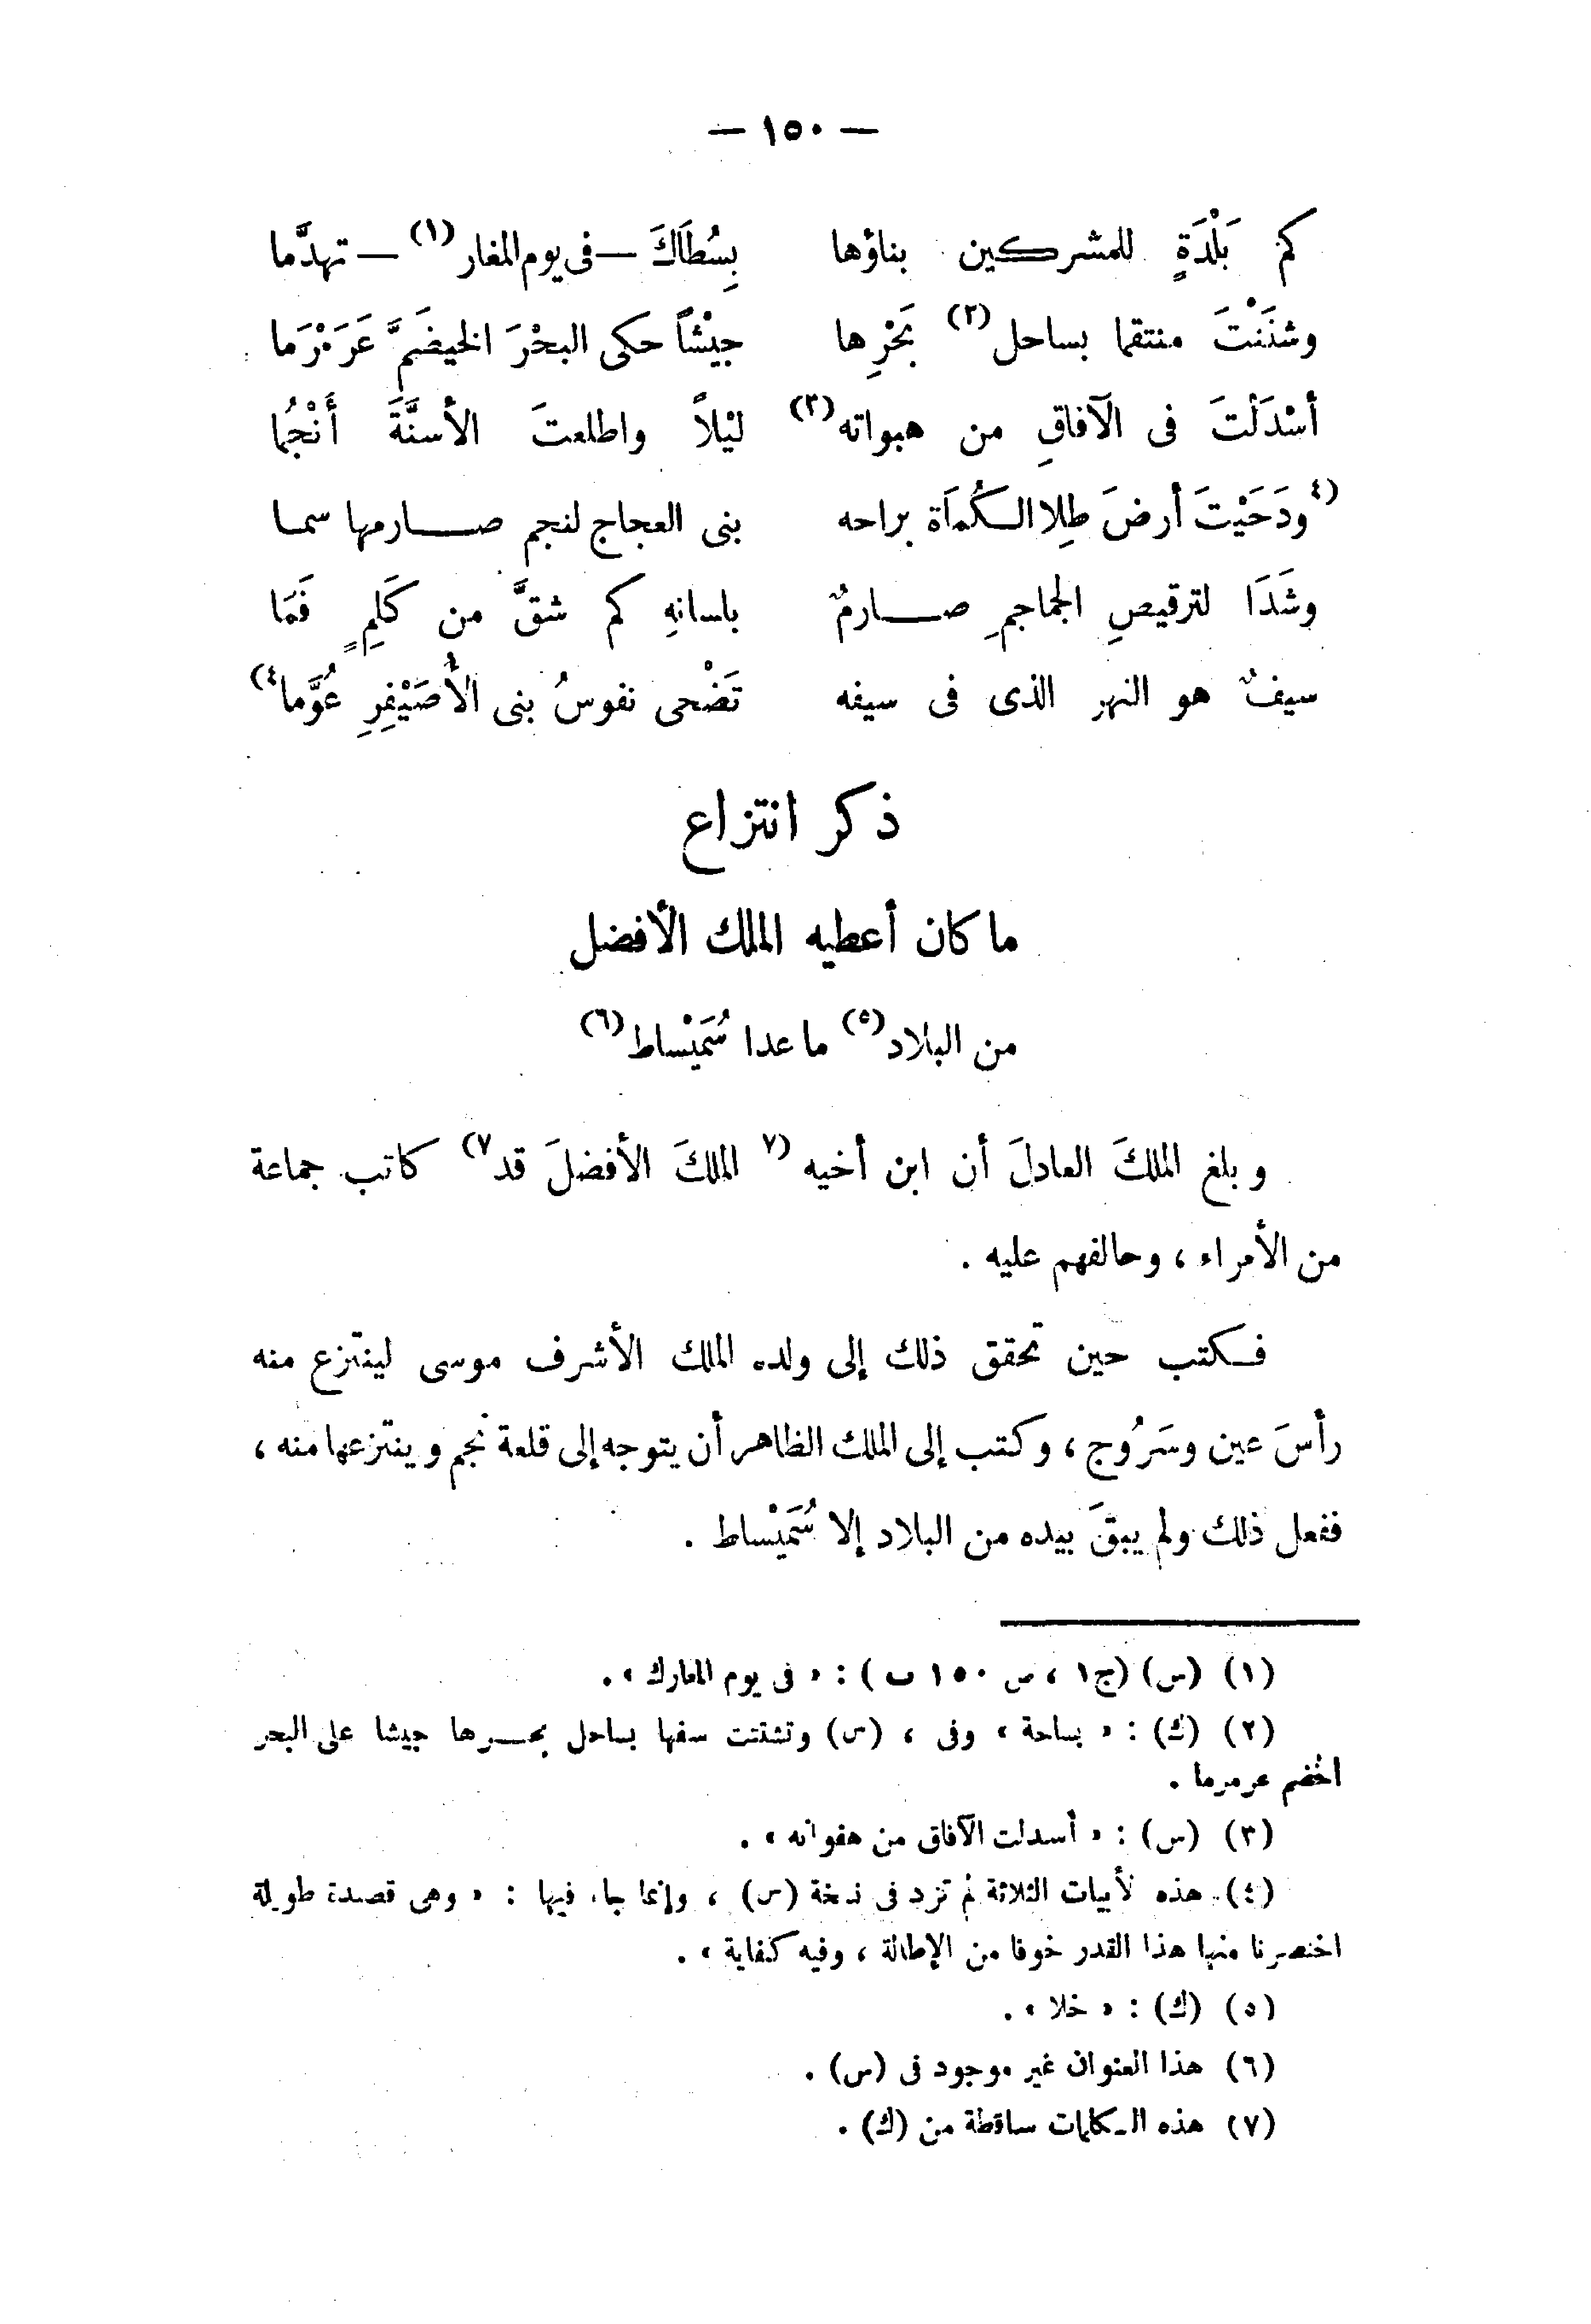 — ١٥٠ —
كم بَلْدَةٍ للمشركين بناؤها بِسُطَاكَ — فى يوم المغار (١) — تهدَّما
وشنَنْتَ منتقما بساحل (٢) بَحْرِها جيْشاً حكى البحْرَ الخِضَمَّ عَرَمْرَما
أسْدَلْتَ فى الآفاقِ من هبواته (٣) ليْلاً واطلعتَ الأسنَّةَ أَنْجُما
(٤ ودَحَيْتَ أرضَ طِلا الكُمَاة براحه بنى العجاج لنجم صارمها سما
وشَدَا لترقيصِ الجماجمِ صارمٌ باسانهِ كم شقَّ من كَلِمٍ فَمَا
سيفٌ هو النهر الذى فى سيفه تَضْحى نفوسُ بنى الأُصَيْفِرِ عُوَّما ٤)
ذكر انتزاع
ما كان أعطيه الملك الأفضل
من البلاد (٥) ما عدا سُمَيْساط (٦)
وبلغ الملكَ العادلَ أن ابن أخيه (٧ الملكَ الأفضلَ قد ٧) كاتب جماعة
من الأمراء ، وحالفهم عليه .
فكتب حين تحقق ذلك إلى ولده الملك الأشرف موسى لينتزع منه
رأسَ عين وسَرُوج ، وكتب إلى الملك الظاهر أن يتوجه إلى قلعة نجم وينتزعها منه ،
ففعل ذلك ولم يبقَ بيده من البلاد إلا سُمَيْساط .
(١) (س) (ج١ ، ص ١٥٠ ب) : « فى يوم المعارك » .
(٢) (ك) : « بساحة » وفى ، (س) وتشتتت سفها بساحل بحرها جيشا على البحر
الخضم عرمرما .
(٣) (س) : « أسدلت الآفاق من هفواته » .
(٤) هذه لأبيات الثلاثة لم ترد فى نسخة (س) ، وإنما جاء فيها : « وهى قصيدة طويلة
اختصرنا منها هذا القدر خوفا من الإطالة ، وفيه كفاية » .
(٥) (ك) : « خلا » .
(٦) هذا العنوان غير موجود فى (س) .
(٧) هذه الكلمات ساقطة من (ك) .